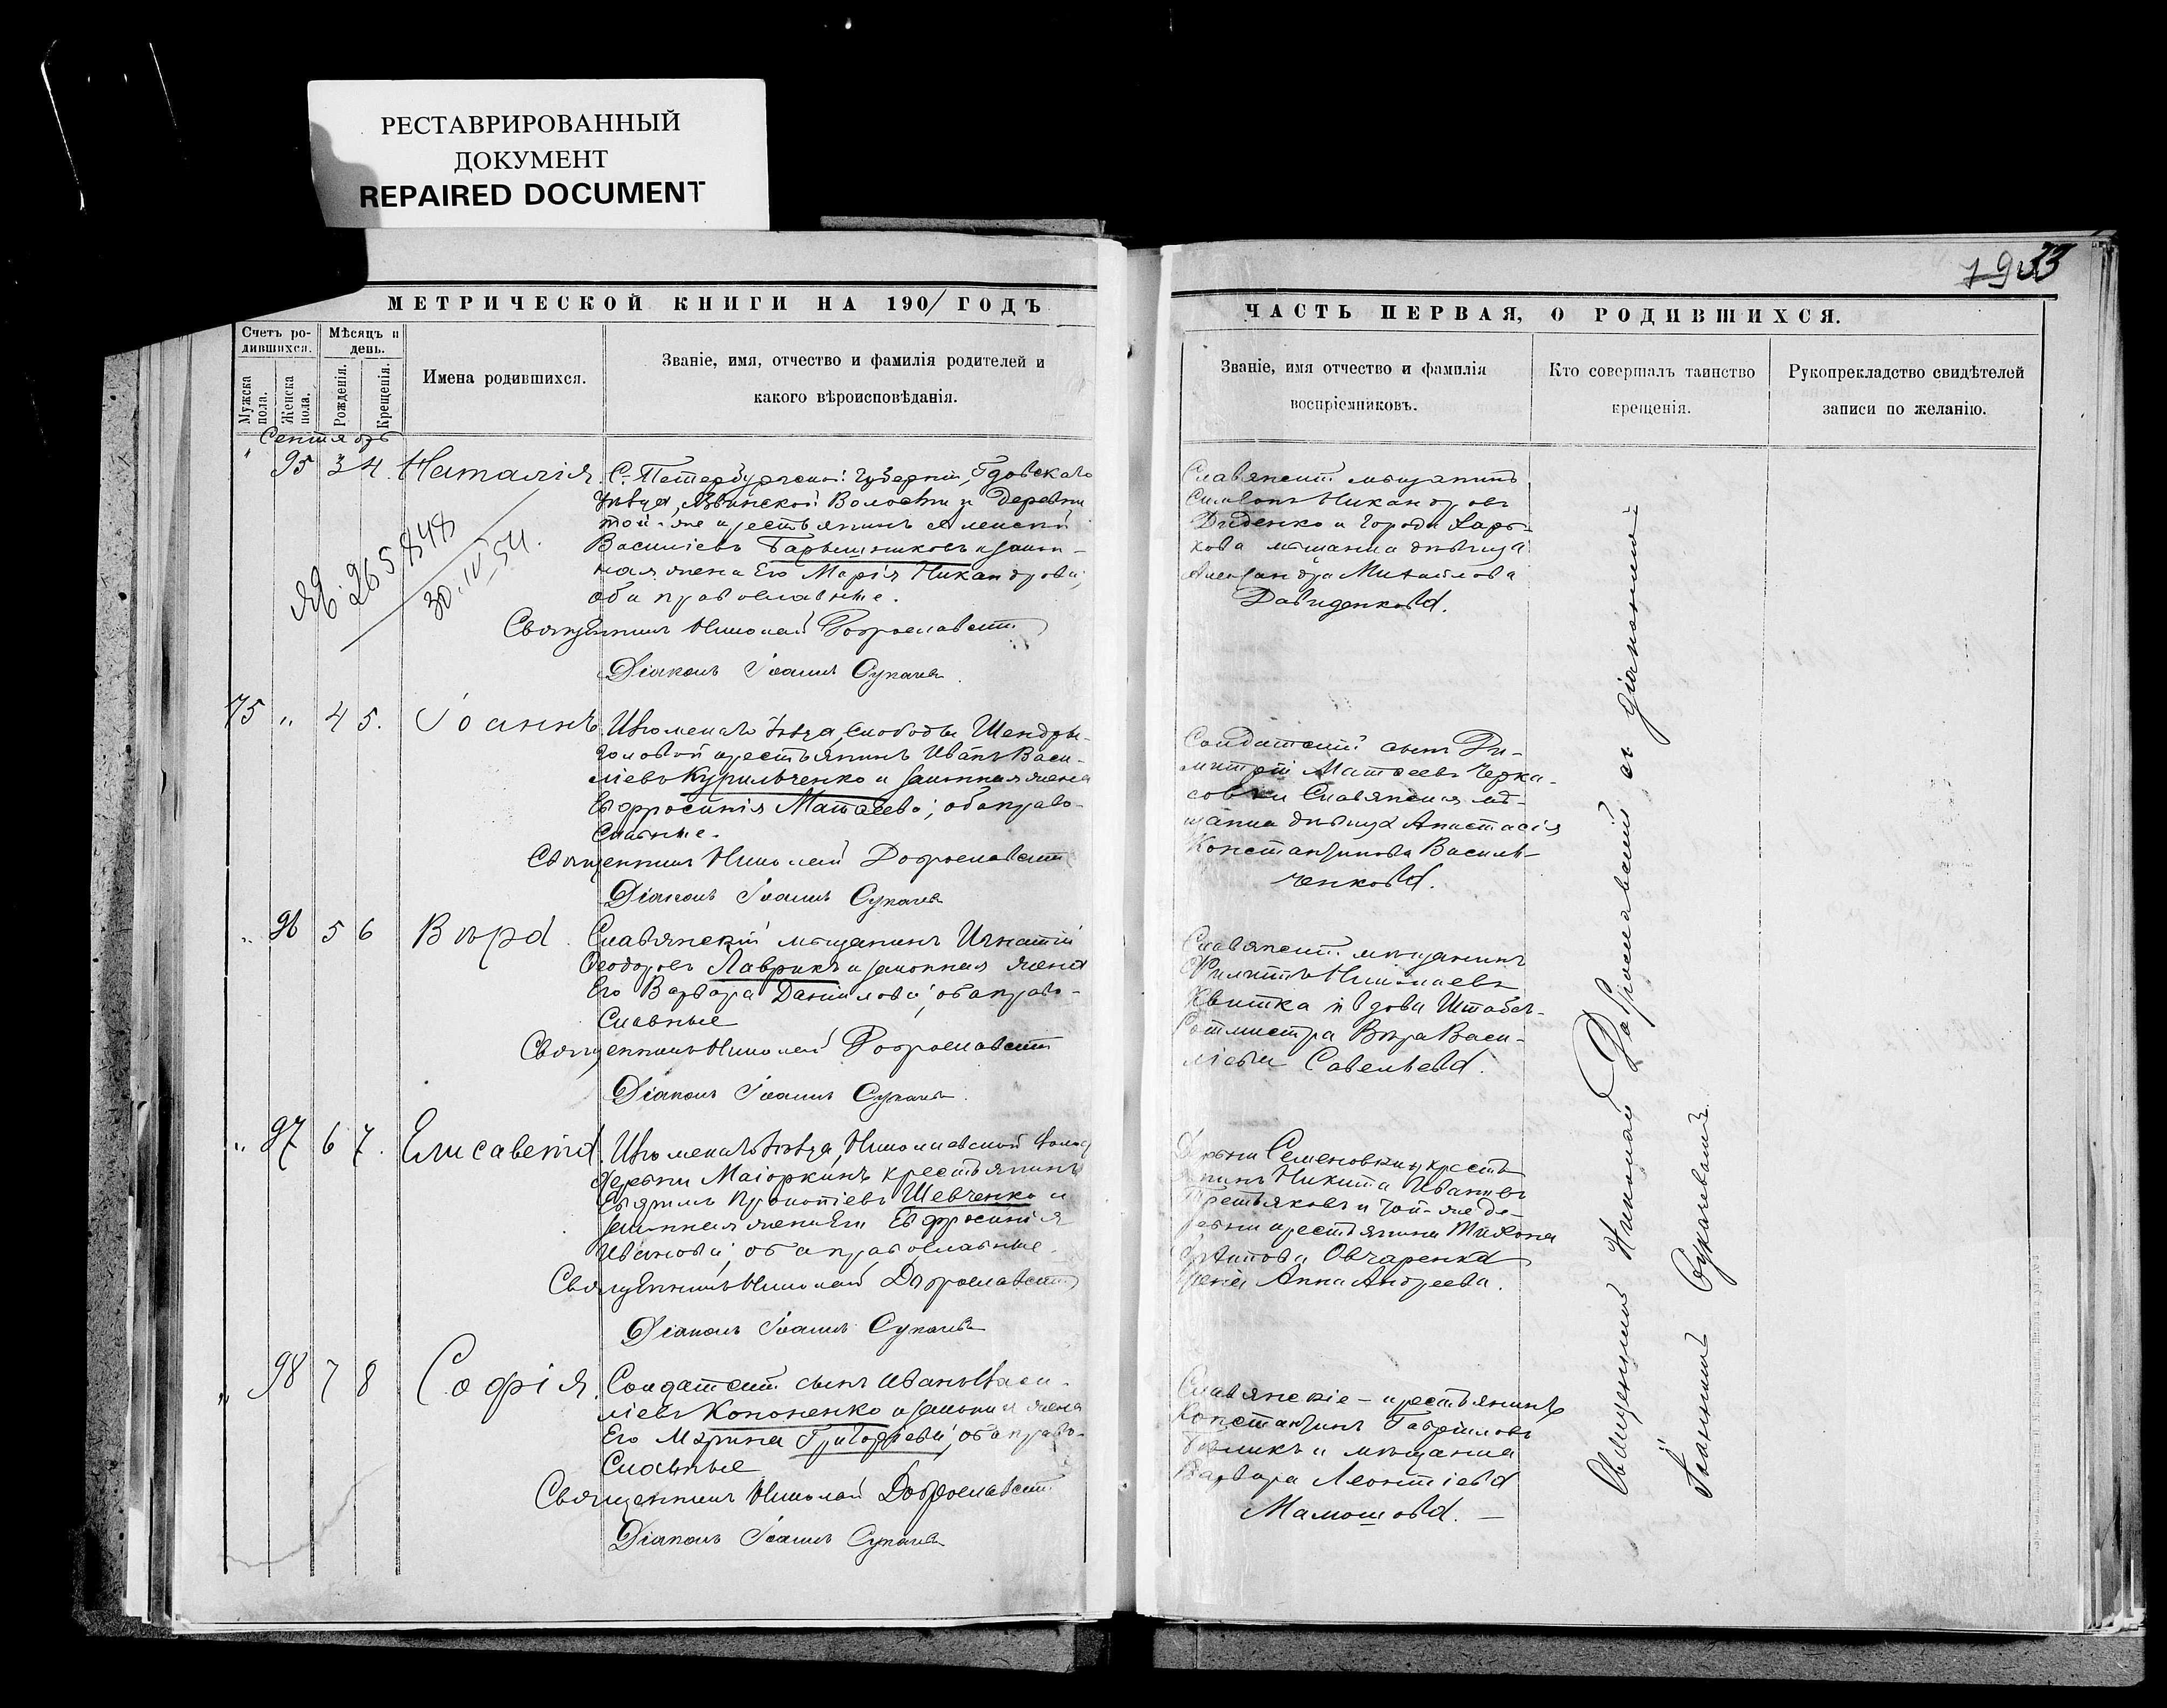 РЕСТАВРИРОВАННЫЙ
ДОКУМЕНТ
REPAIRED DOCUMENT
МЕТРИЧЕСКОЙ КНИГИ НА 1901 ГОДЪ
Счетъ ро-
дившихся.
Мѣсяцъ и
день.
Мужска
пола.
Женска
пола.
Рожденія.
Крещенія.
Имена родившихся.
Званіе, имя, отчество и фамилія родителей и
какого вѣроисповѣданія.
Сентябрь
" 95 3 4. Наталія.
С. Петербургской Губерніи, Гдовскаго
уѣзда, Волости и деревни
той-же крестьянинъ Алексѣй
Василіевъ Барышниковъ и закон-
ная жена его Марія Никандрова;
оба православные.
265848
30.IV.54.
Священникъ Николай Доброславскій
Діаконъ Іоаннъ Сукачевъ
75 " 4 5. Іоаннъ
Изюмскаго уѣзда, слободы Шендры-
головой крестьянинъ Иванъ Васи-
ліевъ Курильченко и законная жена
Его Евфросинія Матѳеева; оба право-
славные.
Священникъ Николай Доброславскій
Діаконъ Іоаннъ Сукачевъ
" 96 5 6 Вѣра
Славянскій мѣщанинъ Игнатій
Ѳеодоровъ Лаврикъ и законная жена
Его Варвара Даніилова; оба право-
славные
Священникъ Николай Доброславскій
Діаконъ Іоаннъ Сукачевъ
" 97 6 7. Елисавета
Изюмскаго уѣзда, Николаевской волос.
деревни Маіоркинъ крестьянинъ
Прокопіевъ Шевченко и
законная жена Его Евфросинія
Иванова; оба православные.
Священникъ Николай Доброславскій
Діаконъ Іоаннъ Сукачевъ
" 98 7 8 Софія.
Солдатскій сынъ Иванъ Васи-
ліевъ Кононенко и законная жена
Его Марина Григоріева; оба право-
славные
Священникъ Николай Доброславскій
Діаконъ Іоаннъ Сукачевъ
33
ЧАСТЬ ПЕРВАЯ, О РОДИВШИХСЯ.
Званіе, имя отчество и фамилія
воспріемниковъ.
Кто совершалъ таинство
крещенія.
Рукоприкладство свидѣтелей
записи по желанію.
Славянскій мѣщанинъ
Симеонъ Никандровъ
Диденко и города Харь-
кова мѣщанка дѣвица
Александра Михайлова
Давиденкова.
Солдатскій сынъ Ди-
митрій Матѳеевъ Черка-
совъ и Славянская мѣ-
щанка дѣвица Анастасія
Константинова Василь-
ченкова.
Славянскій мѣщанинъ
Филиппъ Николаевъ
Квитка и вдова Штабсъ-
Ротмистра Вѣра Васи-
ліева Савельева.
Деревни Семеновки крестья-
янинъ Никита Ивановъ
Третьяковъ и той-же де-
ревни крестьянина Тихона
Овчаренка
жена Анна Андреева.
Славянскіе - крестьянинъ
Константинъ Гавріиловъ
и мѣщанка
Варвара Леонтіева
Мамошова. —
Священникъ Николай Доброславскій съ діакономъ
Іоанномъ Сукачевымъ